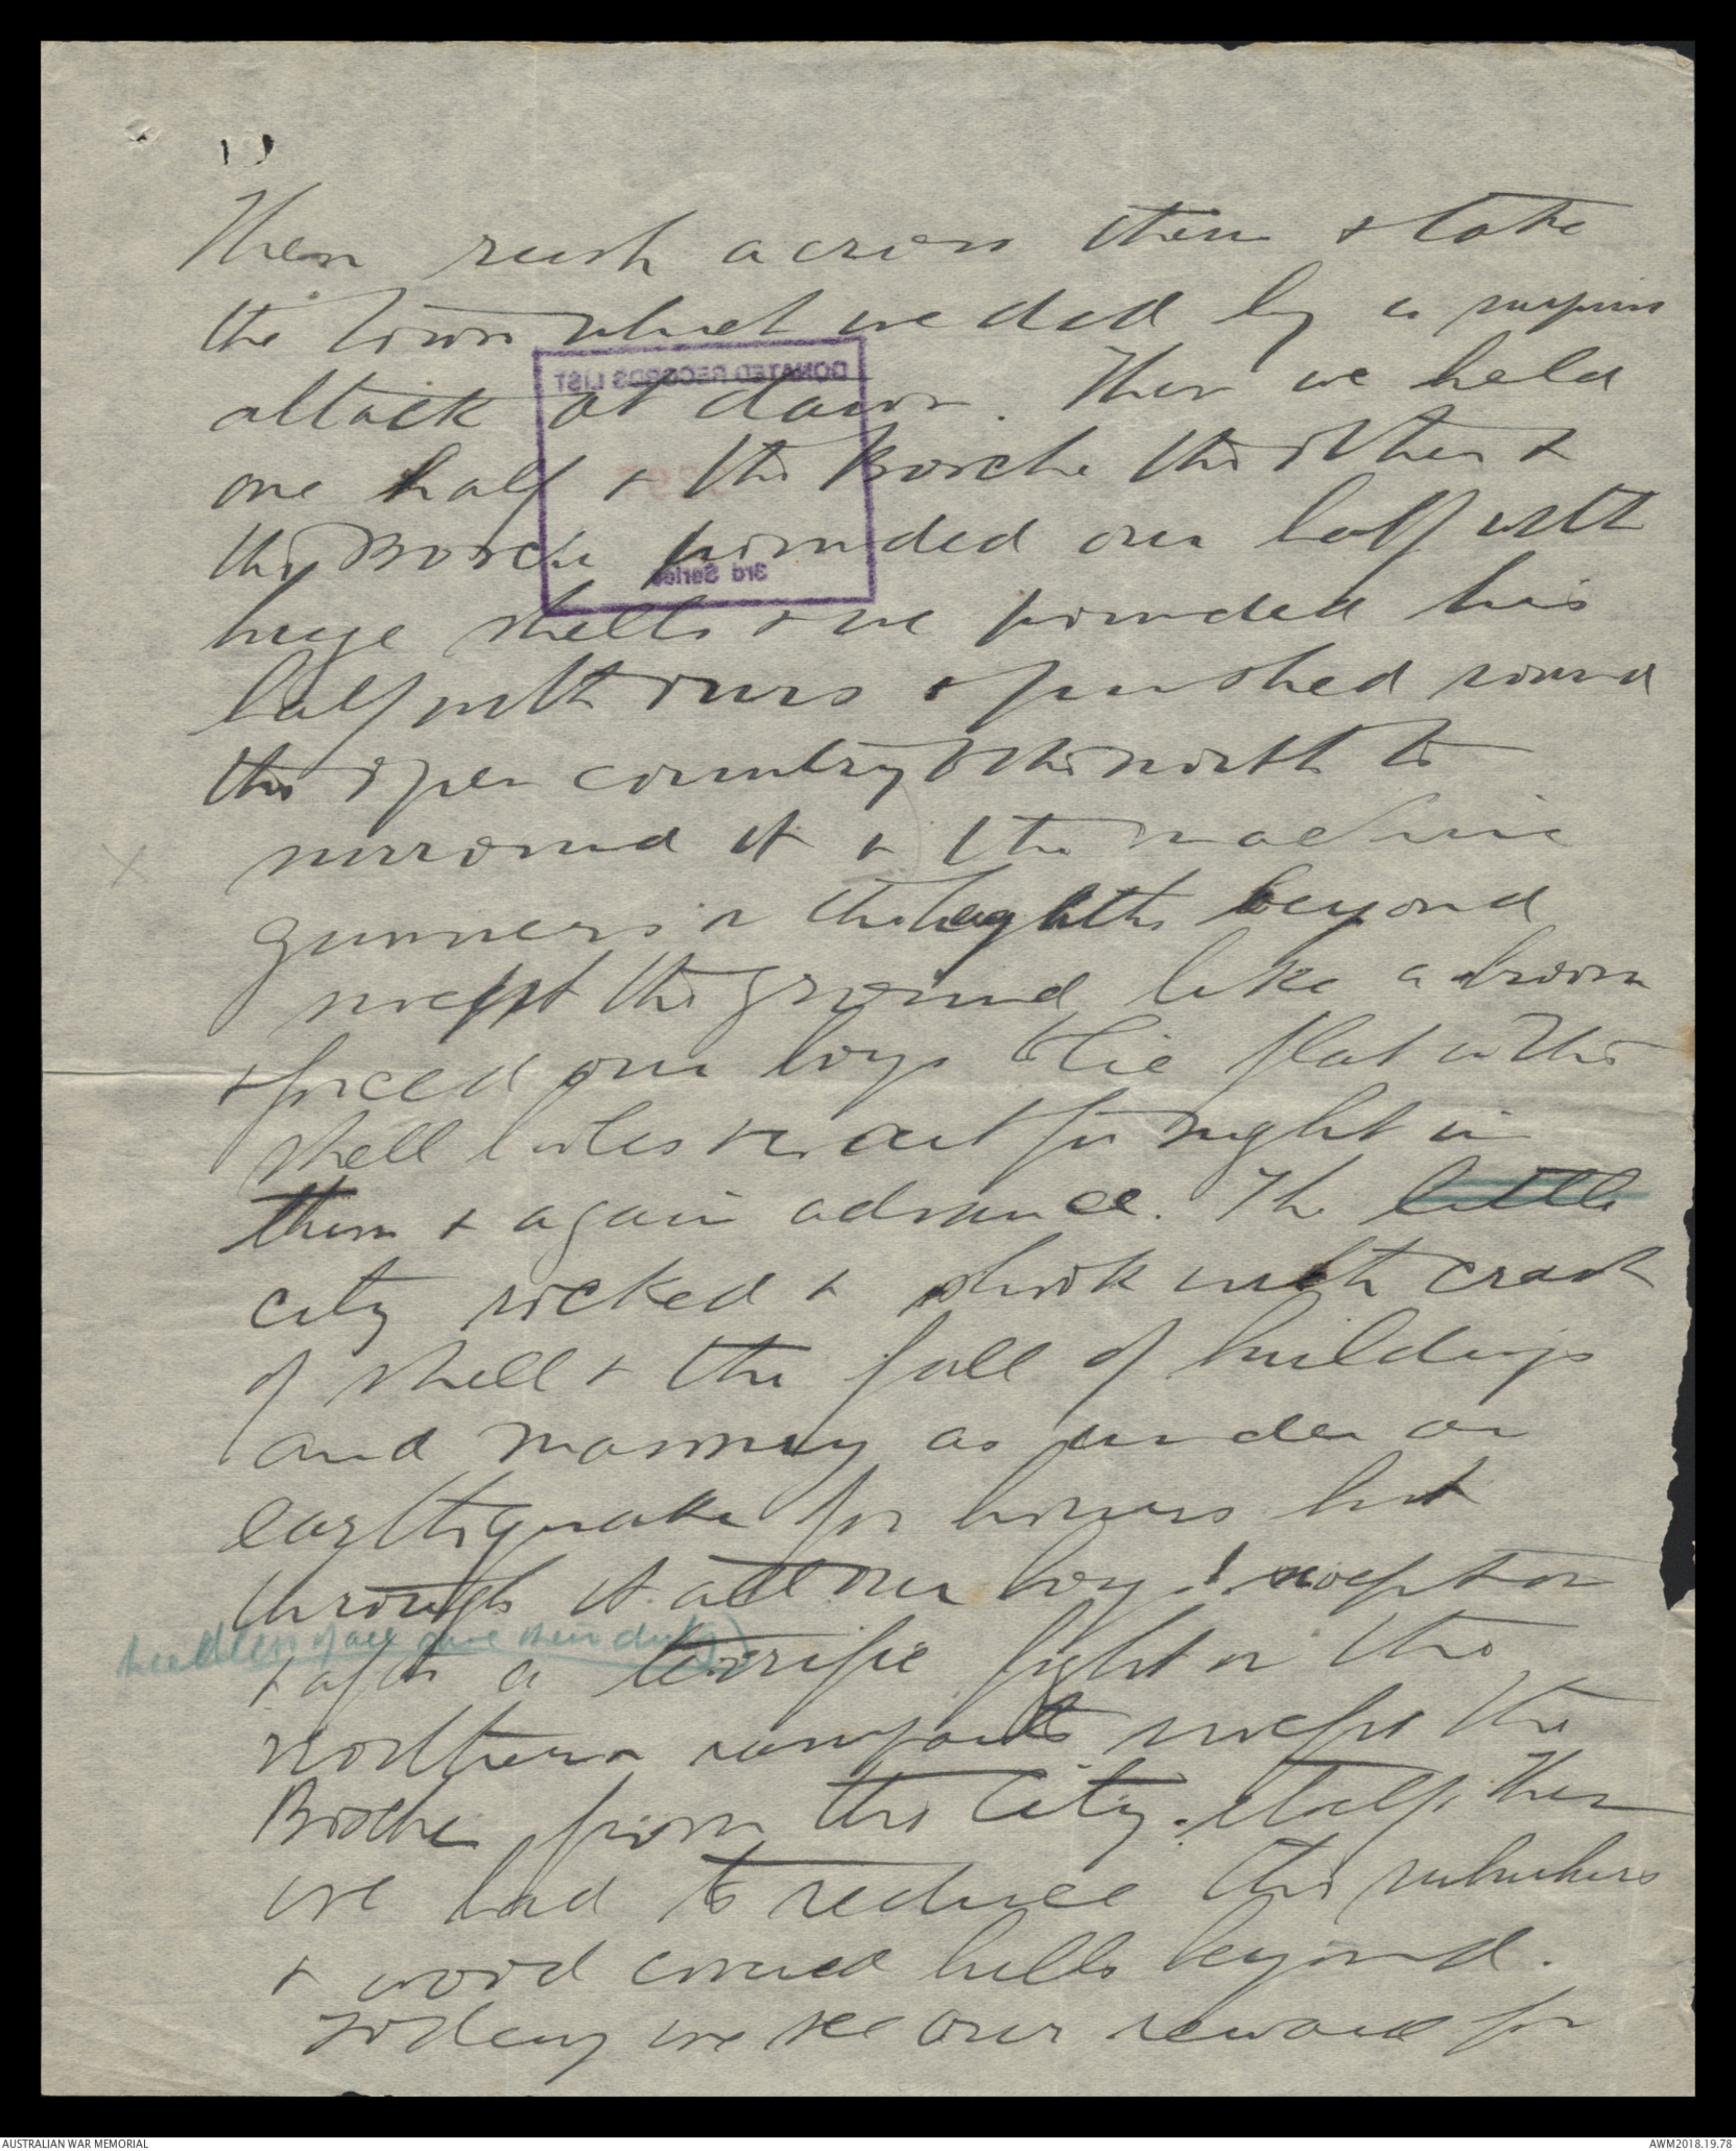 Then rush across them & take
the town which we did by a surprise
attack at dawn. Then we held
one half & the Bosche the other &
the Bosche pounded our half with
huge shells & we pounded his
half with ours & pushed round
the open country to the north to
surround it & the machine
gunners in the heights beyond
swept the ground like a broom
& forced our boys to lie flat in the
shell holes & wait for night in
them & again advance. The little
city rocked & shook with crash
of shell & the fall of buildings
and masonry as under an
earthquake for hours but
through it all our boys swept on
heedless of all save their duty)
& after a terrific fight in the
northern ramparts swept the
Bosche from the City. Then
we had to reduce the suburbs
& wood covered hills beyond.
Today we see our reward for
DONATED RECORDS LIST
3rd Series
AUSTRALIAN WAR MEMORIAL
AWM2018.19.78